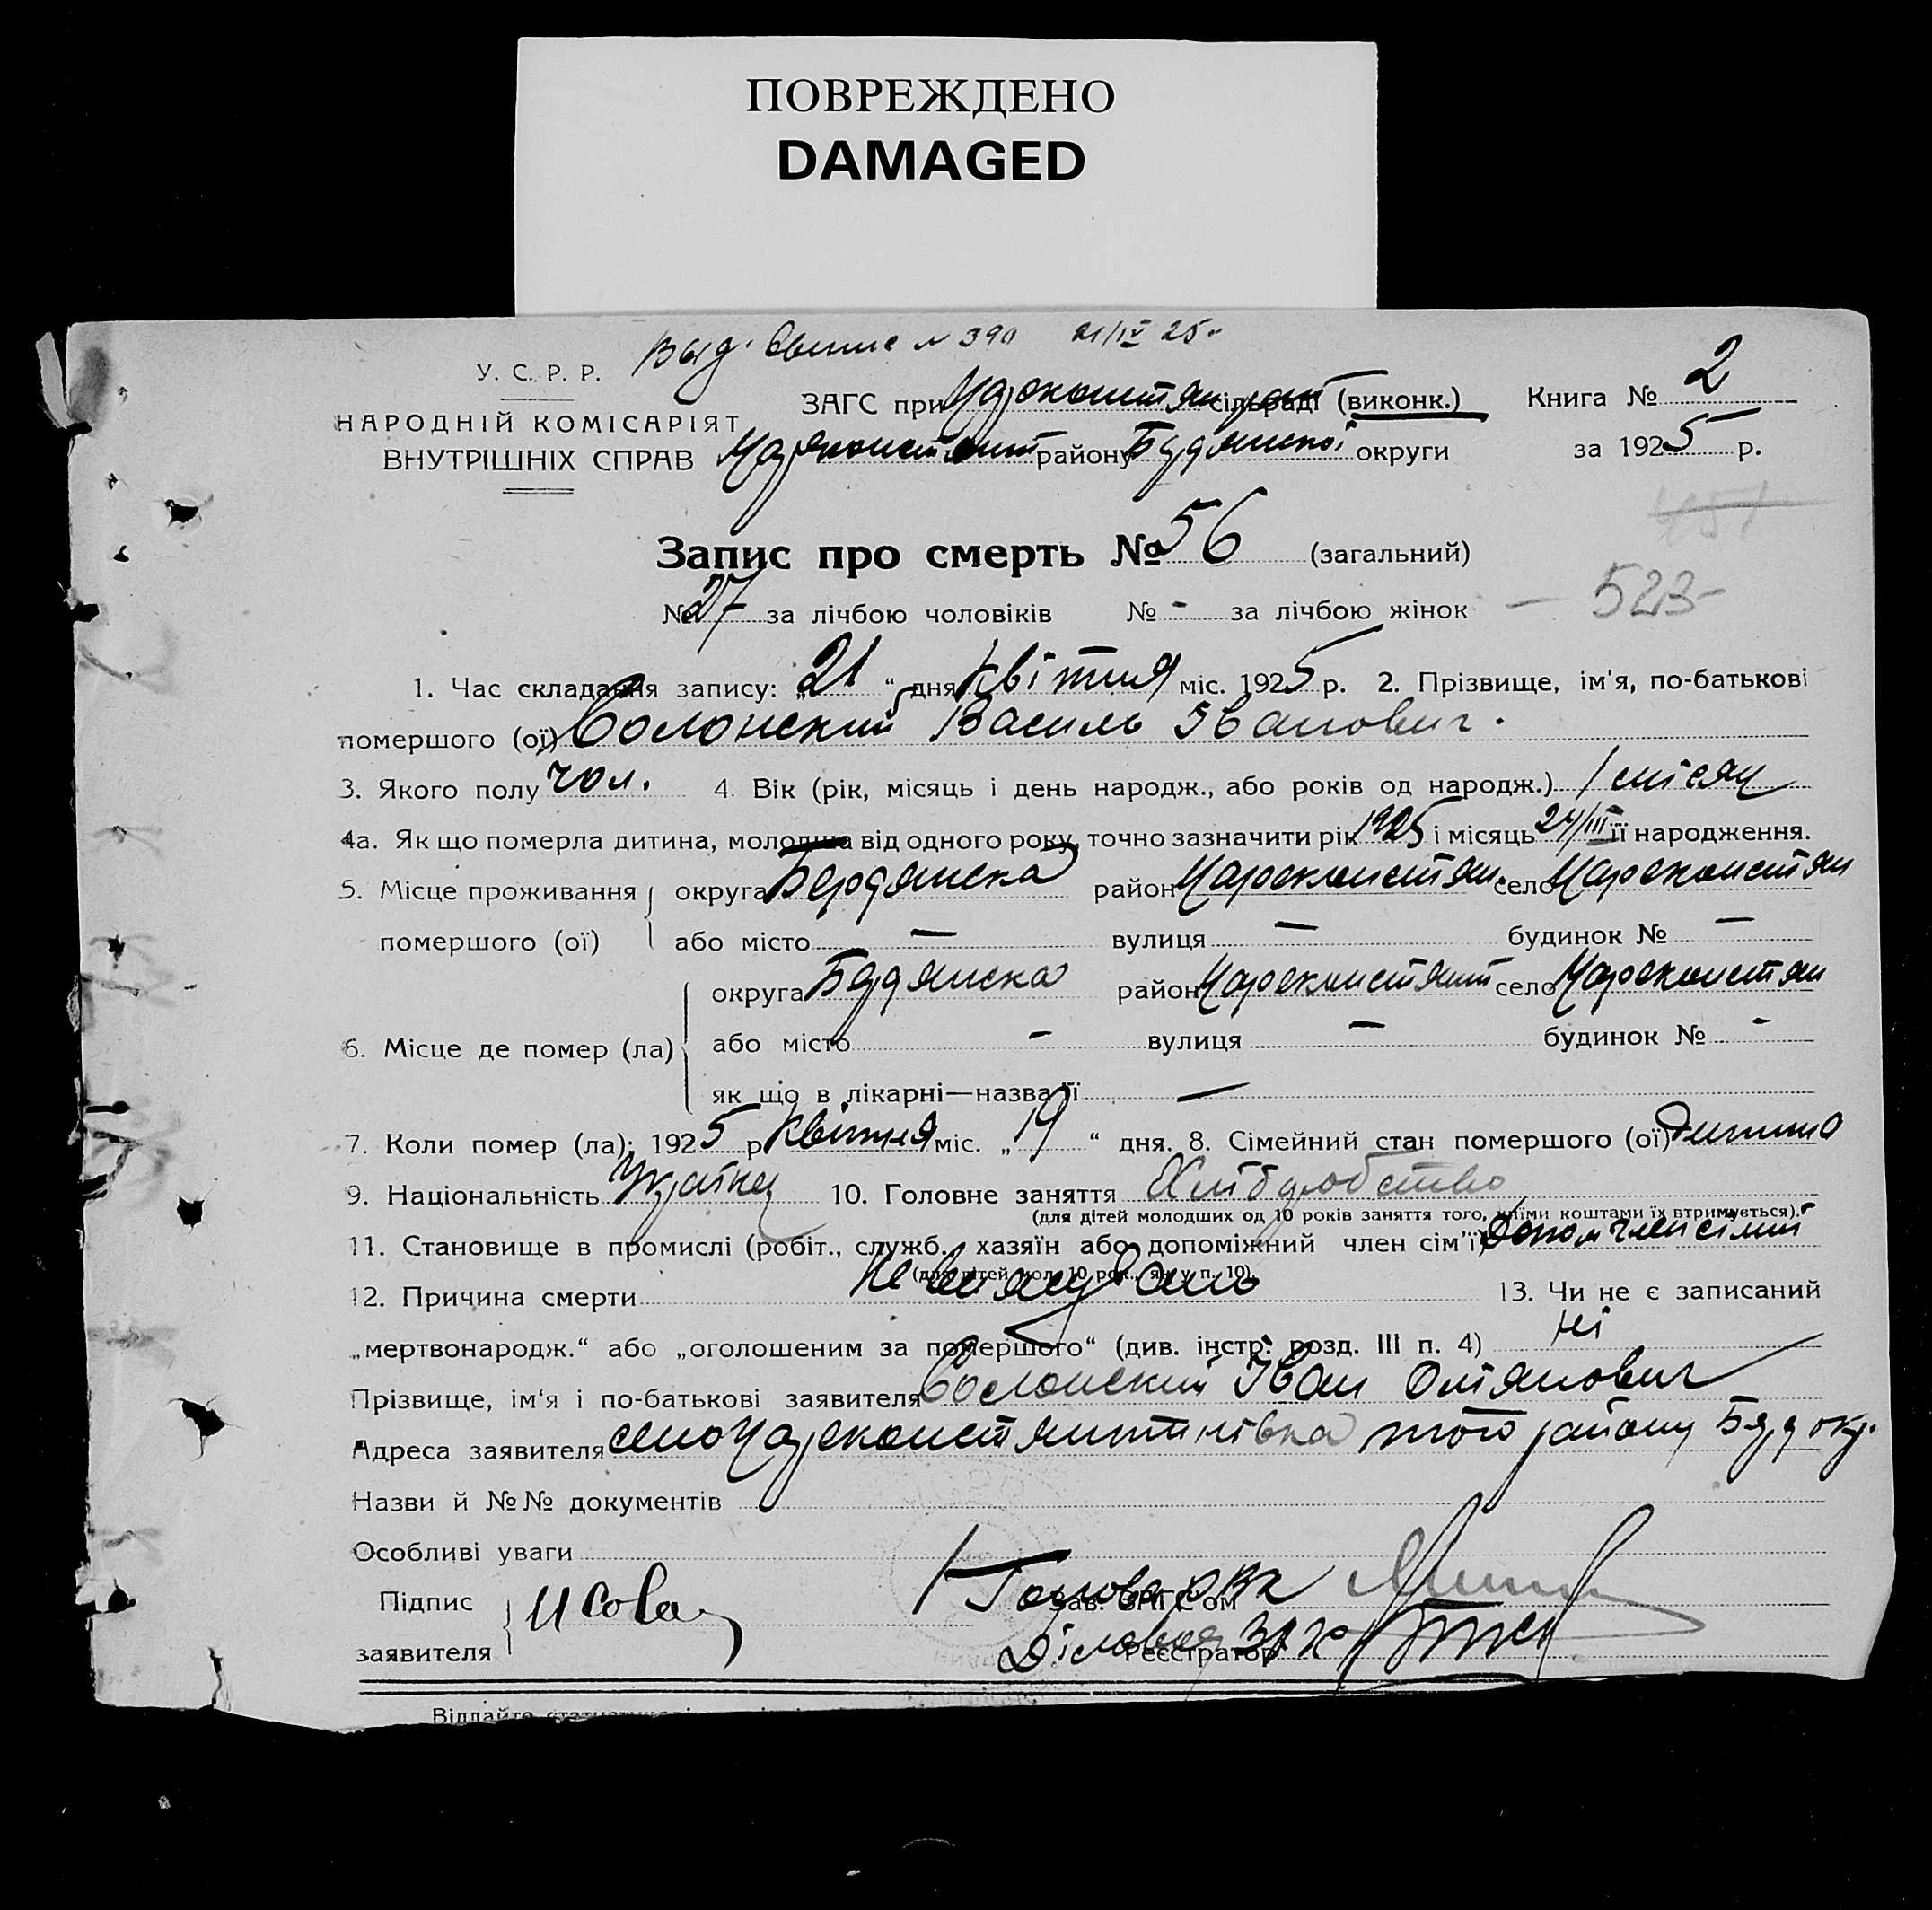 ПОВРЕЖДЕНО
DAMAGED
Выд. № 390 21/IV 25
У. С. Р. Р.
ЗАГС при Цареконстян. сільраді (виконк.) Книга № 2
НАРОДНІЙ КОМІСАРІЯТ
ВНУТРІШНІХ СПРАВ Царяконстянт району Бердянської округи за 1925 р.
Запис про смерть № 56 (загальний)
№ 27 за лічбою чоловіків № - за лічбою жінок - 523-
1. Час складання запису: „21“ дня Квітня міс. 1925 р. 2. Прізвище, ім’я, по-батькові
помершого (ої) Солонский Василь Іванович.
3. Якого полу чол. 4. Вік (рік, місяць і день народж., або років од народж.) 1 місяц
4а. Як що померла дитина, молодша від одного року, точно зазначити рік 1925 і місяць 24/III її народження.
5. Місце проживання округа Бердянска район Цареконстян. село Цареконстян
помершого (ої) або місто — вулиця — будинок № —
округа Бердянска район Цареконстянт село Цареконстян
6. Місце де помер (ла) або місто - вулиця — будинок № -
як що в лікарні—назва її —
7. Коли помер (ла): 1925 р Квітня міс. „19“ дня. 8. Сімейний стан помершого (ої) дитина
9. Національність Українец 10. Головне заняття Хлібробство
(для дітей молодших од 10 років заняття того, чиїми коштами їх втримується).
11. Становище в промислі (робіт., служб., хазяїн або допоміжний член сім’ї) Допом член сімії
(для дітей мол. 10 рок., як у п. 10)
12. Причина смерти 13. Чи не є записаний
„мертвонародж.“ або „оголошеним за помершого“ (див. інстр. розд. III п. 4) Ні
Прізвище, ім‘я і по-батькові заявителя Солонский Іван
Адреса заявителя село Цареконстянтинівка того району Бердокр.
Назви й №№ документів
Особливі уваги
Підпис Голова РВК
Зав. ЗАГС'ом
заявителя Діловод ЗАГС
Реєстратор